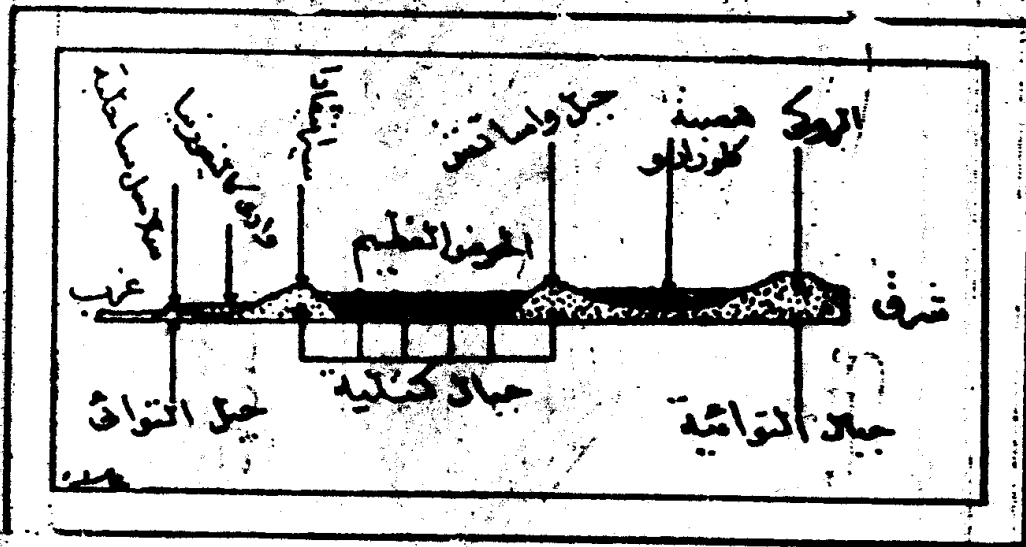 الروكي
هضبة
كلورادو
جبل واساتش
سيرانيفادا
وادي كاليفورنيا
سلاسل ساحلية
الحوض العظيم
شرق
غرب
جبال التوائية
جبال كتلية
جبل التوائى